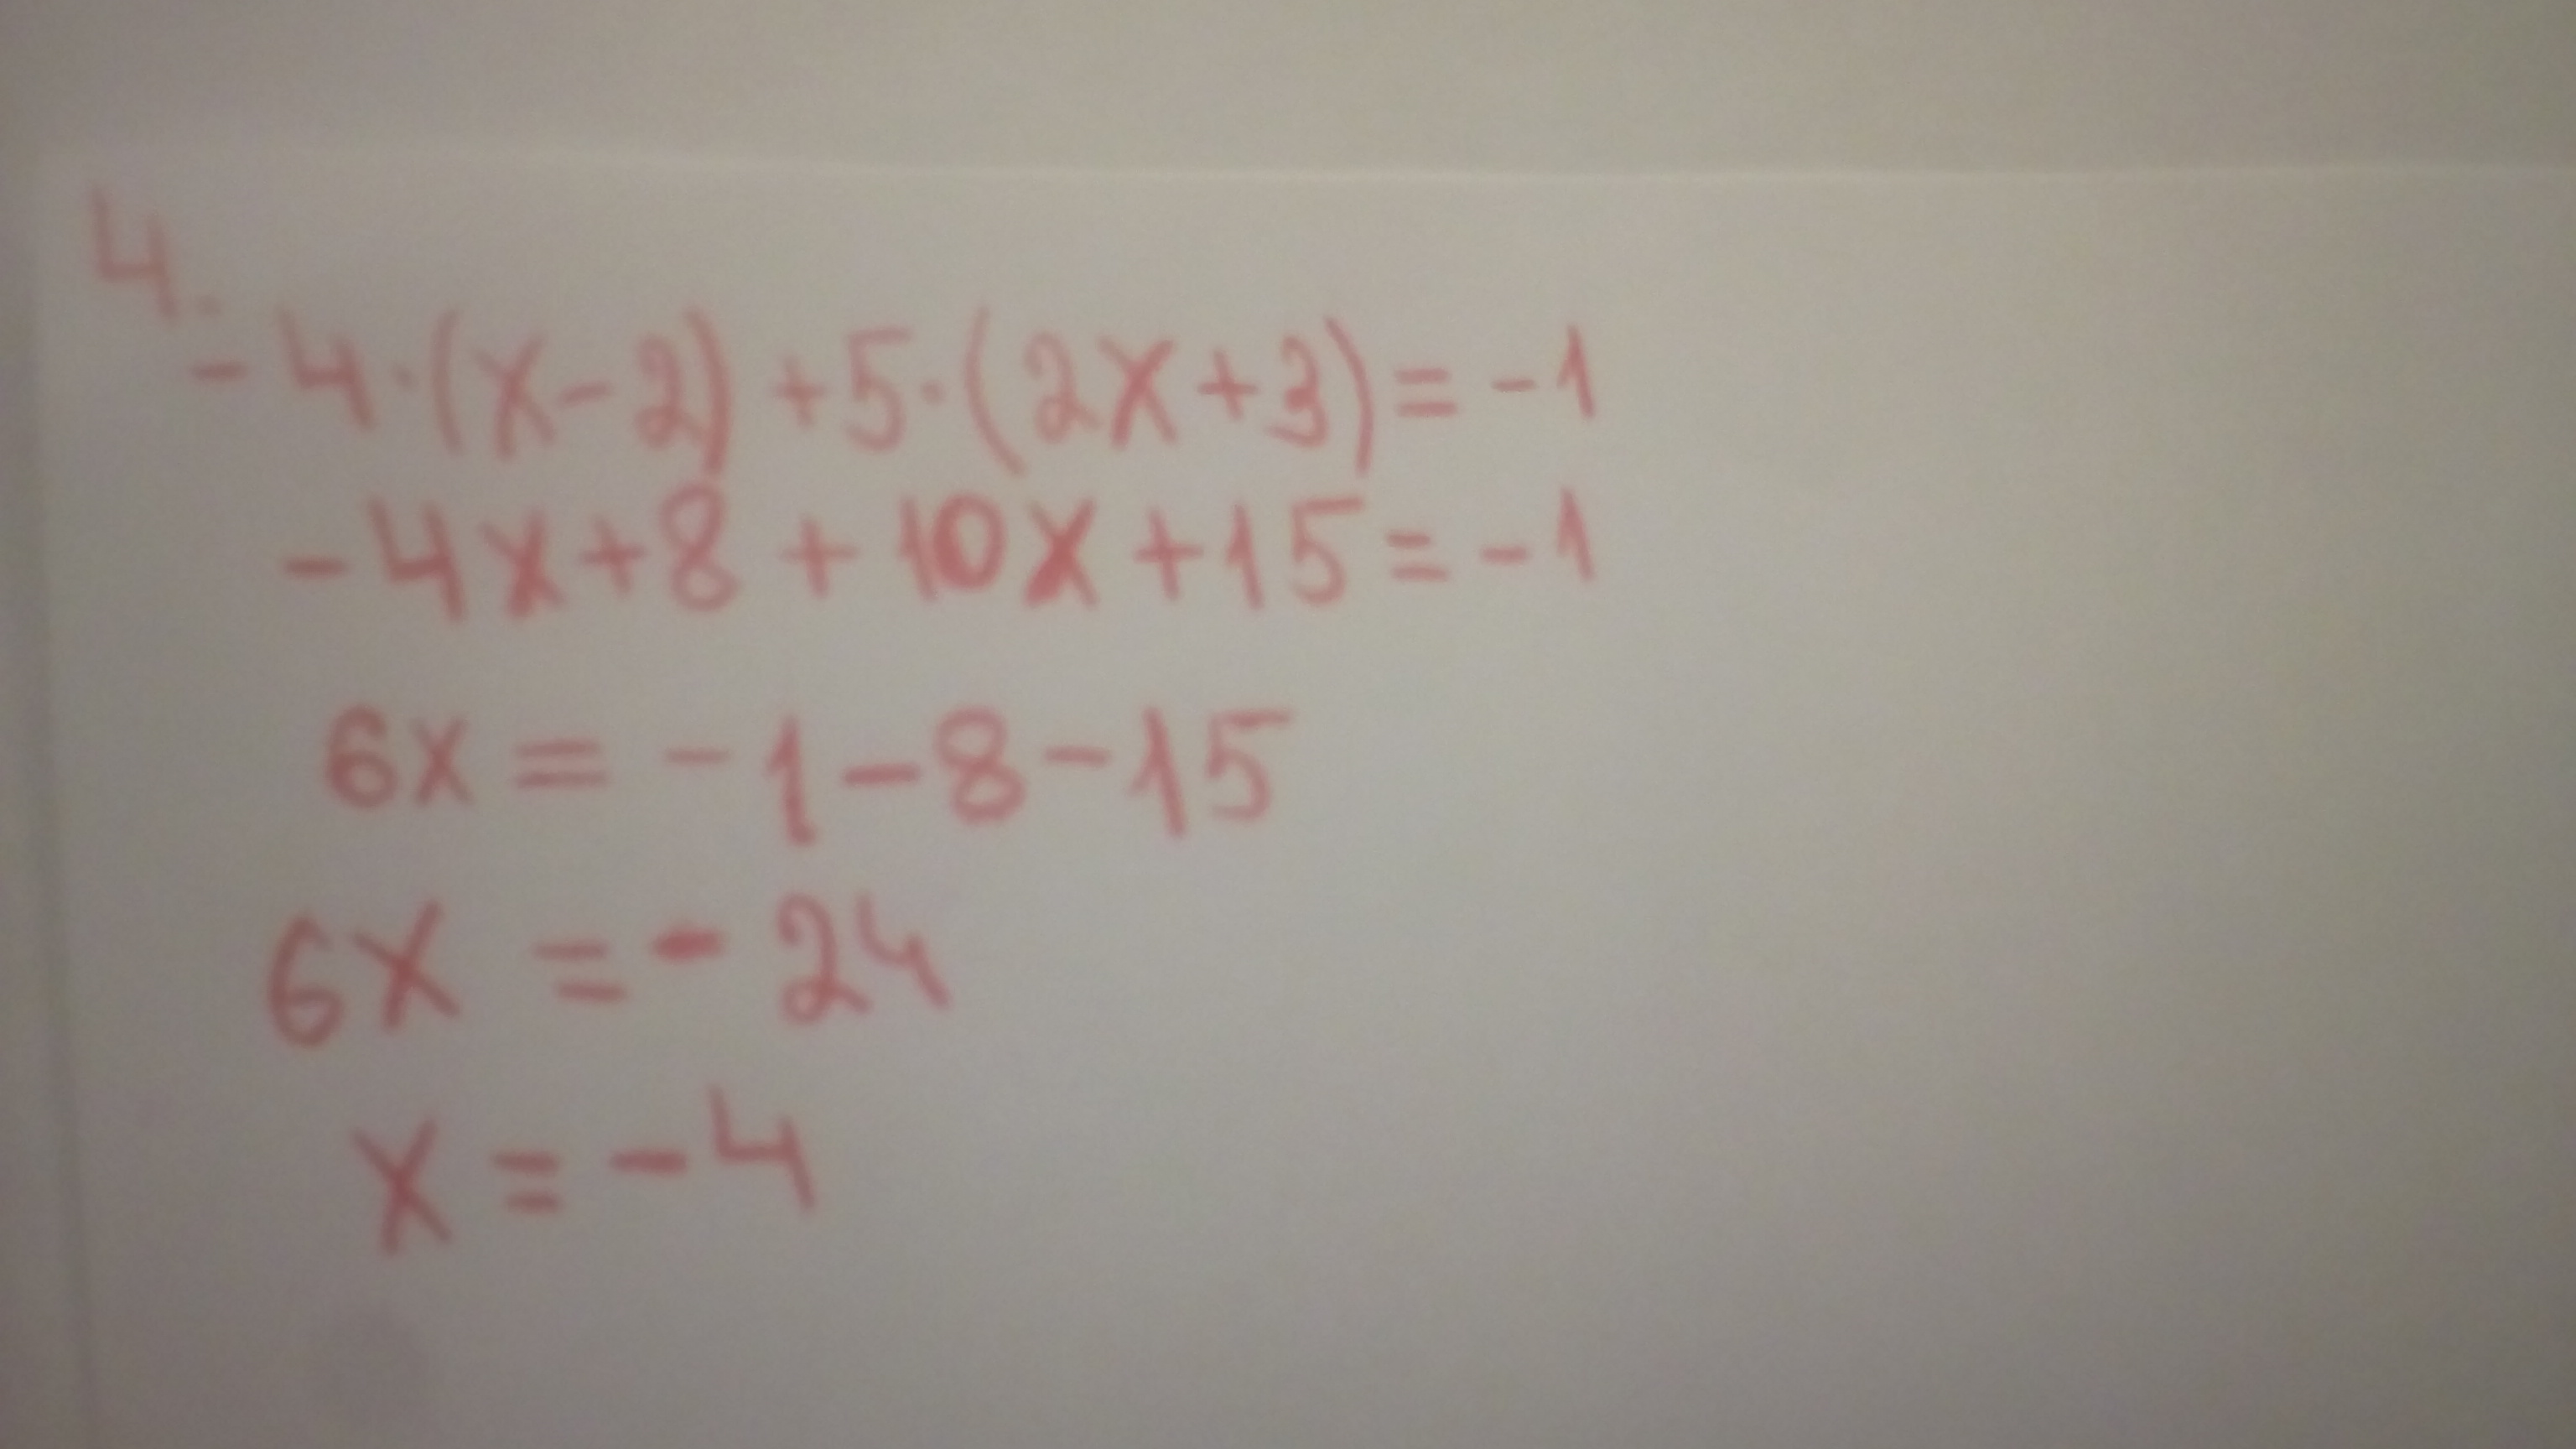 4.
-4·(x-2)+5·(2x+3)=-1
-4x+8+10x+15=-1
6x=-1-8-15
6x=-24
x=-4